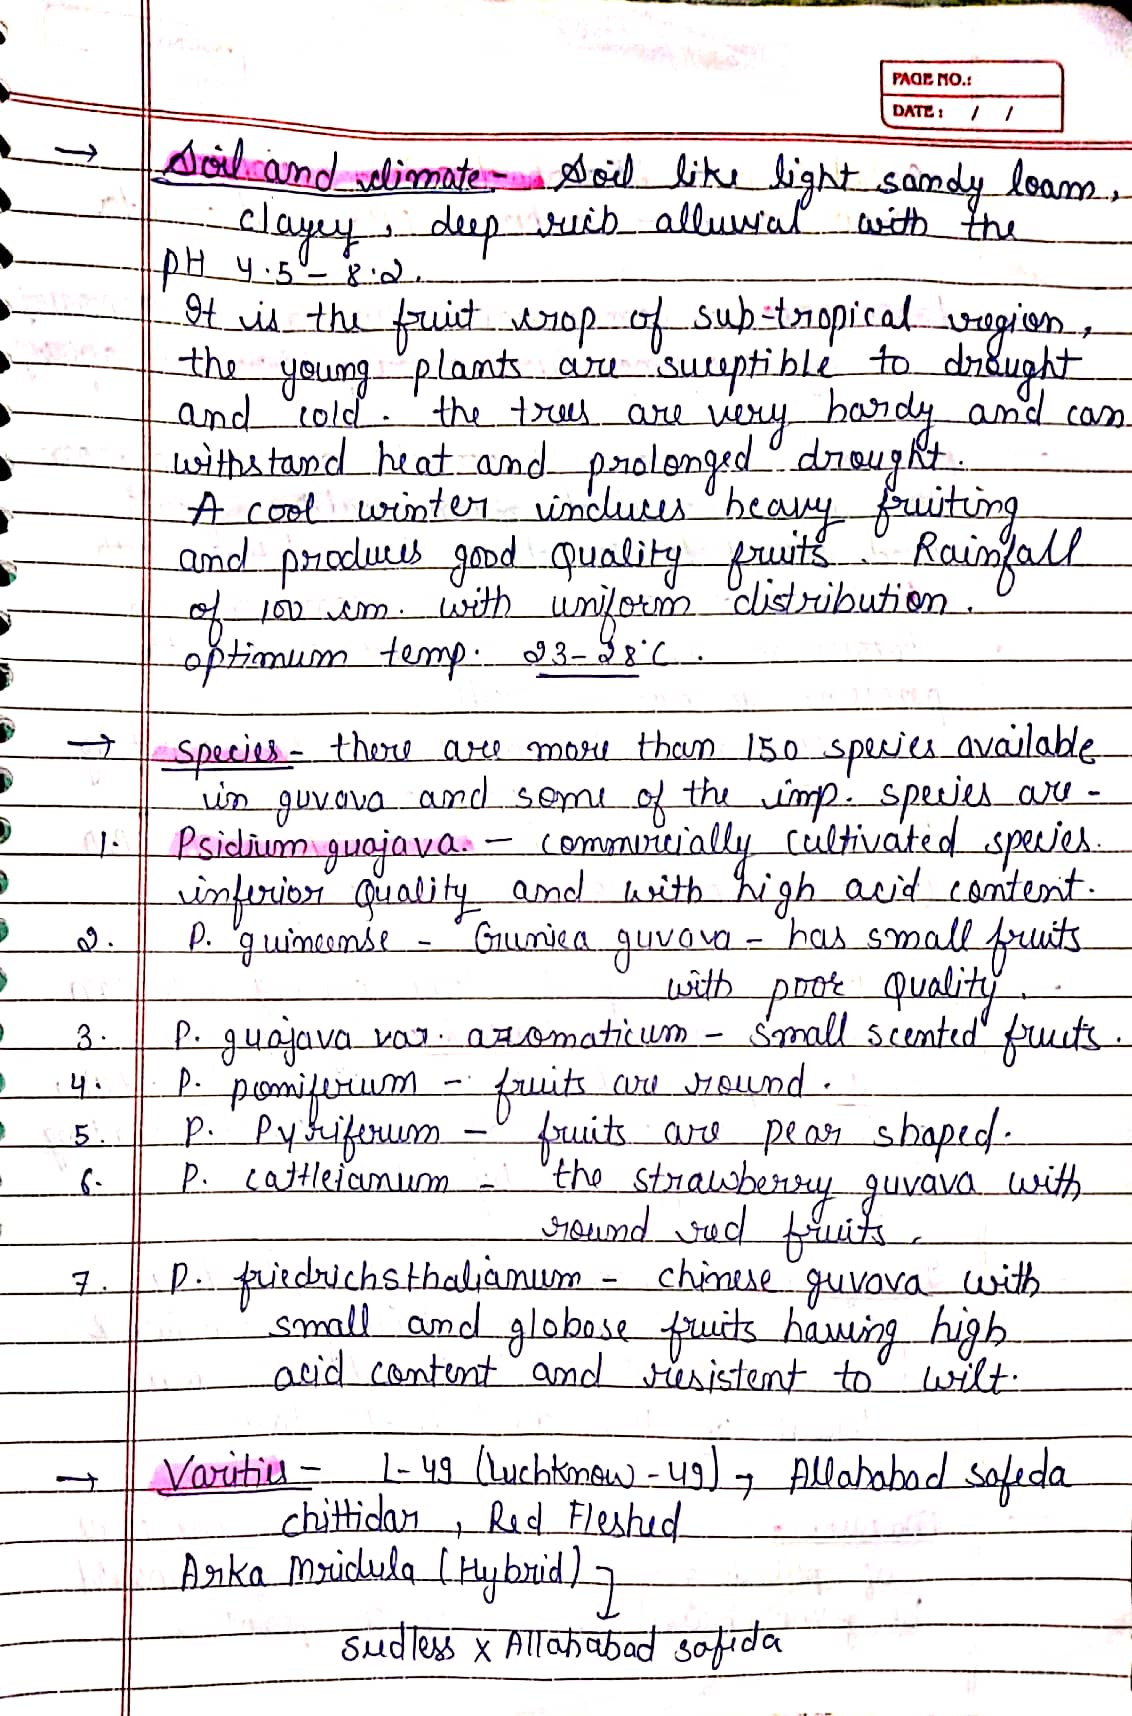 PAGE NO.:
DATE: / /
→ Soil and climate - Soil like light sandy loam,
clayey, deep rich alluvial with the
pH 4.5 - 8.2.
It is the fruit crop of sub-tropical region,
the young plants are suceptible to drought
and cold. the trees are very hardy and can
withstand heat and prolonged drought.
A cool winter induces heavy fruiting
and produces good quality fruits. Rainfall
of 100 cm. with uniform distribution.
optimum temp. 23-28°C.
→ Species - there are more than 150 species available
in guvava and some of the imp. species are -
1. Psidium guajava. - commercially cultivated species.
inferior quality and with high acid content.
2. P. guineense - Guniea guvava - has small fruits
with poor quality.
3. P. guajava var. aromaticum - small scented fruits.
4. P. pomiferum - fruits are round.
5. P. Pyriferum - fruits are pear shaped.
6. P. cattleianum - the strawberry guvava with
round red fruits.
7. P. friedrichsthalianum - chinese guvava with
small and globose fruits having high
acid content and resistent to wilt.
→ Varities - L-49 (Luchknow-49), Allahabad safeda
chittidar, Red Fleshed
Arka Mridula (Hybrid) ↓
Seedless x Allahabad safeda